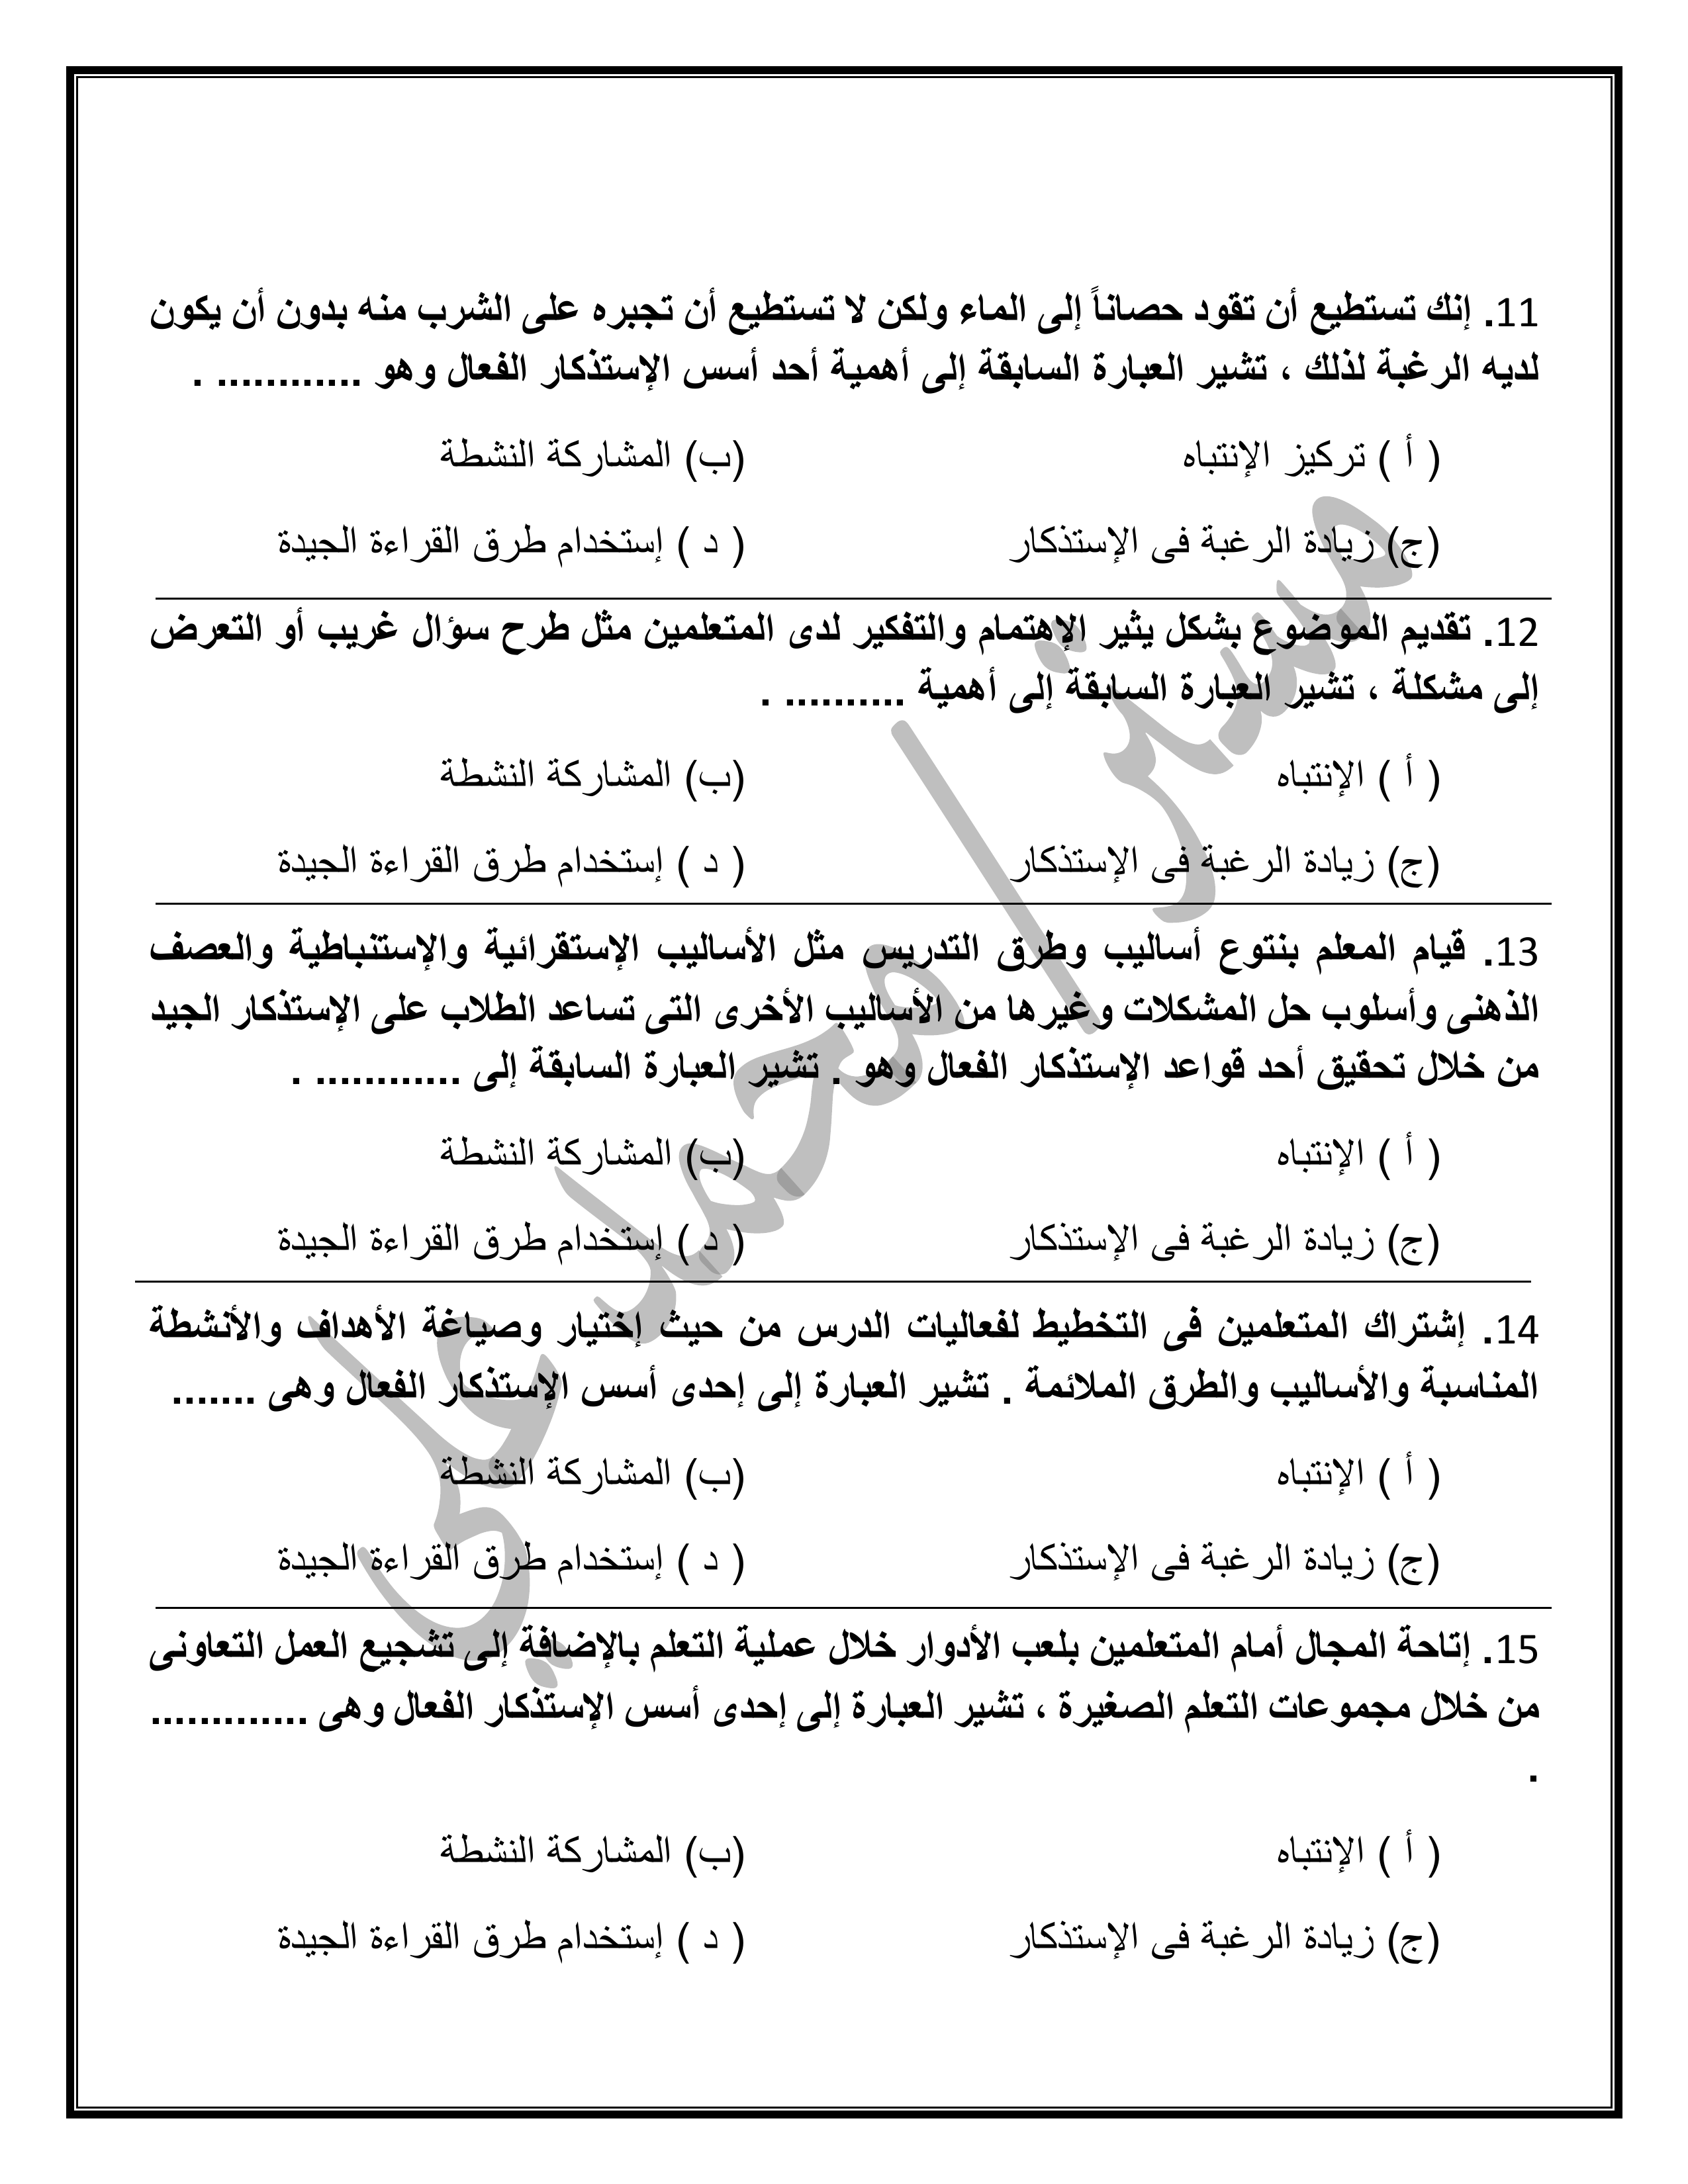 11. إنك تستطيع أن تقود حصاناً إلى الماء ولكن لا تستطيع أن تجبره على الشرب منه بدون أن يكون
لديه الرغبة لذلك ، تشير العبارة السابقة إلى أهمية أحد أسس الإستذكار الفعال وهو ............ .
( أ ) تركيز الإنتباه (ب) المشاركة النشطة
(ج) زيادة الرغبة فى الإستذكار ( د ) إستخدام طرق القراءة الجيدة
12. تقديم الموضوع بشكل يثير الإهتمام والتفكير لدى المتعلمين مثل طرح سؤال غريب أو التعرض
إلى مشكلة ، تشير العبارة السابقة إلى أهمية .......... .
( أ ) الإنتباه (ب) المشاركة النشطة
(ج) زيادة الرغبة فى الإستذكار ( د ) إستخدام طرق القراءة الجيدة
13. قيام المعلم بنتوع أساليب وطرق التدريس مثل الأساليب الإستقرائية والإستنباطية والعصف
الذهنى وأسلوب حل المشكلات وغيرها من الأساليب الأخرى التى تساعد الطلاب على الإستذكار الجيد
من خلال تحقيق أحد قواعد الإستذكار الفعال وهو . تشير العبارة السابقة إلى ............ .
( أ ) الإنتباه (ب) المشاركة النشطة
(ج) زيادة الرغبة فى الإستذكار ( د ) إستخدام طرق القراءة الجيدة
14. إشتراك المتعلمين فى التخطيط لفعاليات الدرس من حيث إختيار وصياغة الأهداف والأنشطة
المناسبة والأساليب والطرق الملائمة . تشير العبارة إلى إحدى أسس الإستذكار الفعال وهى .......
( أ ) الإنتباه (ب) المشاركة النشطة
(ج) زيادة الرغبة فى الإستذكار ( د ) إستخدام طرق القراءة الجيدة
15. إتاحة المجال أمام المتعلمين بلعب الأدوار خلال عملية التعلم بالإضافة إلى تشجيع العمل التعاونى
من خلال مجموعات التعلم الصغيرة ، تشير العبارة إلى إحدى أسس الإستذكار الفعال وهى .............
.
( أ ) الإنتباه (ب) المشاركة النشطة
(ج) زيادة الرغبة فى الإستذكار ( د ) إستخدام طرق القراءة الجيدة
مستر / محمد علي